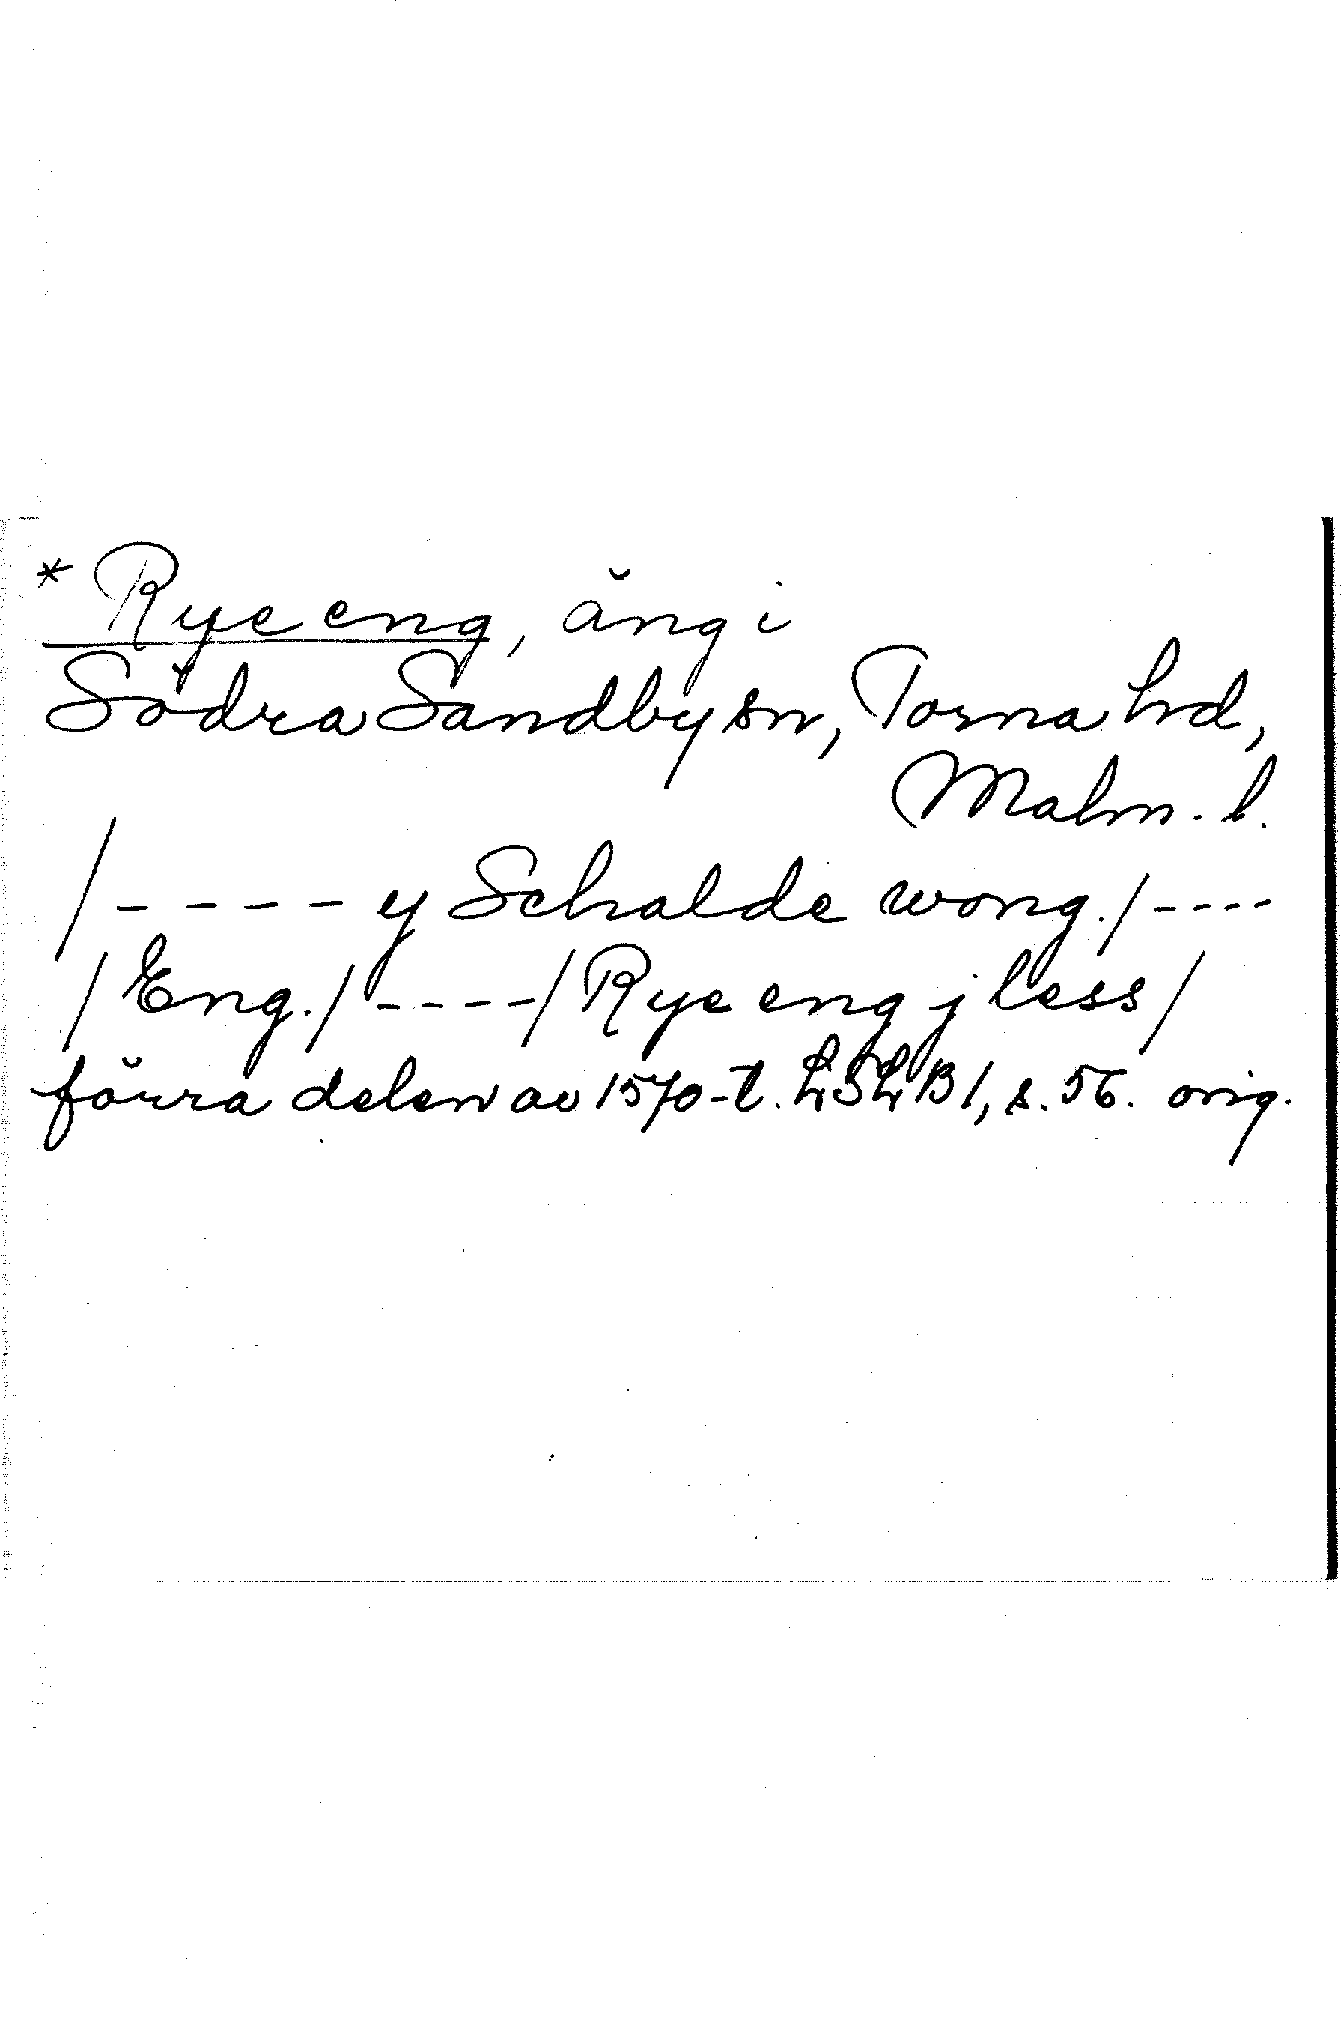 * Rye eng, äng i
Södra Sandby sn, Torna hd,
Malm. l.
/ - - - - y Schalde wong. / - - - -
/ Eng. / - - - - / Rye eng j less /
förra delen av 1570-t. LSLB1, s. 56. orig.